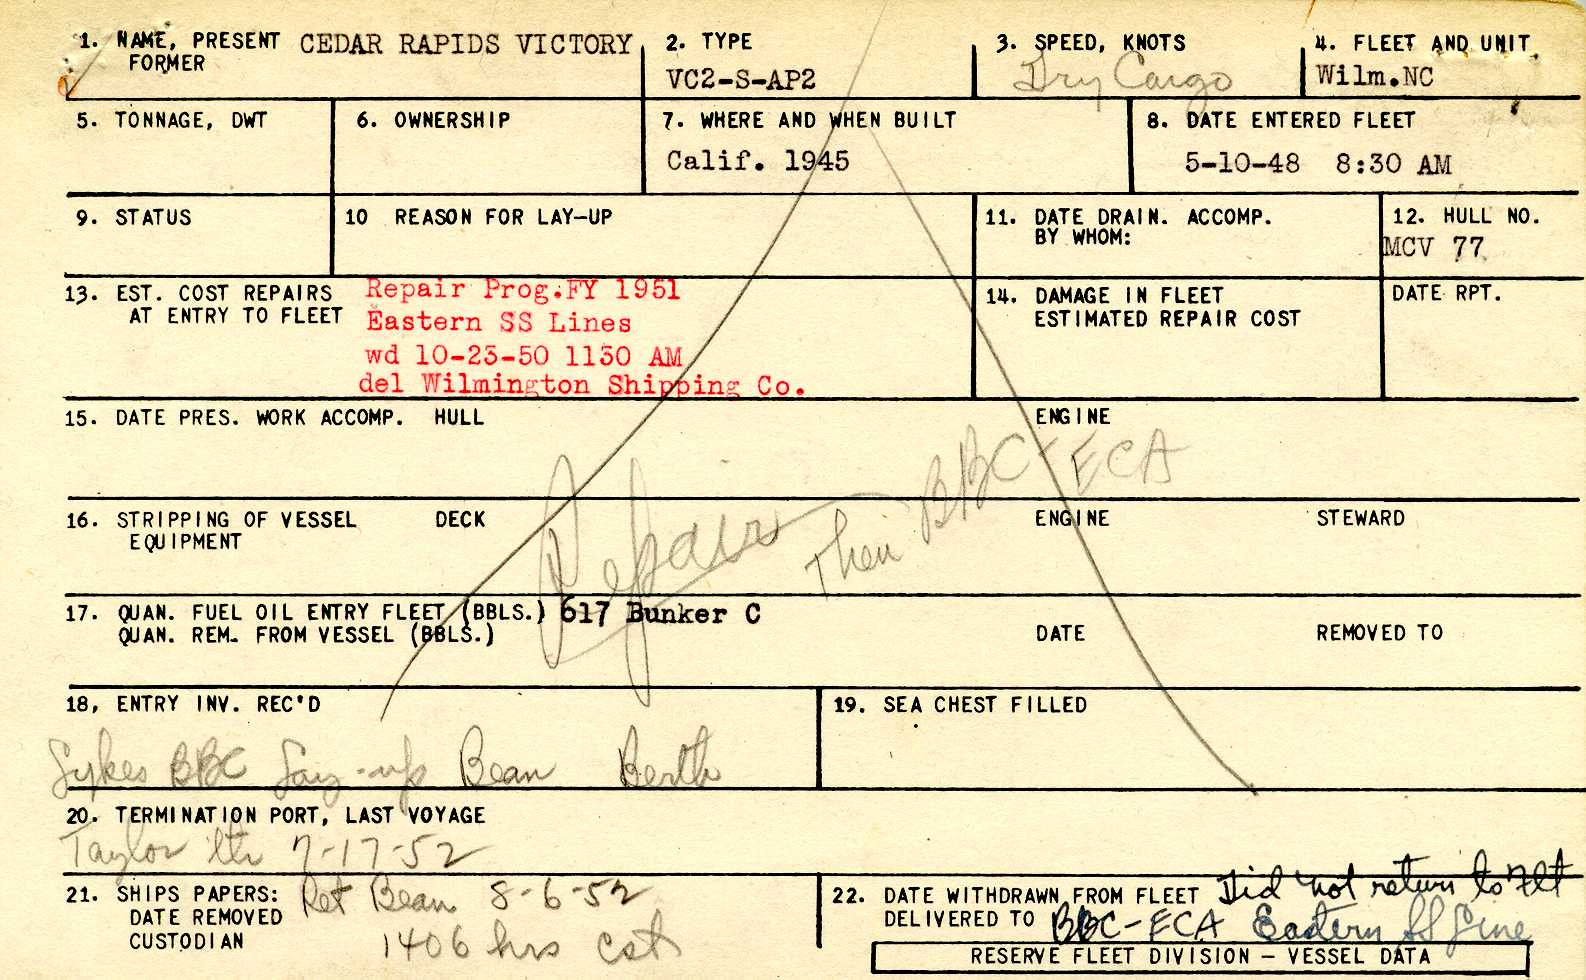 1. NAME, PRESENT CEDAR RAPIDS VICTORY
FORMER
2. TYPE
VC2-S-AP2
3. SPEED, KNOTS
Dry Cargo
4. FLEET AND UNIT
Wilm.NC
5. TONNAGE, DWT
6. OWNERSHIP
7. WHERE AND WHEN BUILT
Calif. 1945
8. DATE ENTERED FLEET
5-10-48 8:30 AM
9. STATUS
10 REASON FOR LAY-UP
11. DATE DRAIN. ACCOMP.
BY WHOM:
12. HULL NO.
MCV 77
13. EST. COST REPAIRS
AT ENTRY TO FLEET
Repair Prog.FY 1951
Eastern SS Lines
wd 10-23-50 1130 AM
del Wilmington Shipping Co.
14. DAMAGE IN FLEET
ESTIMATED REPAIR COST
DATE RPT.
15. DATE PRES. WORK ACCOMP. HULL ENGINE
Repair Then BBC-ECA
16. STRIPPING OF VESSEL DECK ENGINE STEWARD
EQUIPMENT
17. QUAN. FUEL OIL ENTRY FLEET (BBLS.) 617 Bunker C
QUAN. REM. FROM VESSEL (BBLS.) DATE REMOVED TO
18, ENTRY INV. REC'D
Sykes BBC Lay-up Bean Berth
19. SEA CHEST FILLED
20. TERMINATION PORT, LAST VOYAGE
Taylor ltr 7-17-52
21. SHIPS PAPERS: Ret Bean 8-6-52
DATE REMOVED
CUSTODIAN 1406 hrs cst
22. DATE WITHDRAWN FROM FLEET Did not return to Flt
DELIVERED TO BBC-ECA Eastern SS Line
RESERVE FLEET DIVISION – VESSEL DATA